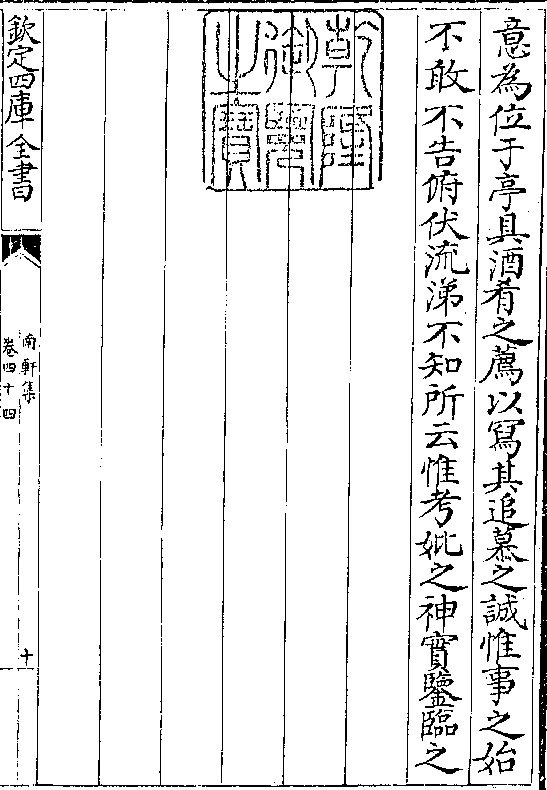 意為位于亭具酒肴之薦以寫其追慕之誠惟事之始
不敢不告俯伏流涕不知所云惟考妣之神實鑒臨之
乾隆
御覽
之寶
欽定四庫全書
南軒集
卷四十四
十